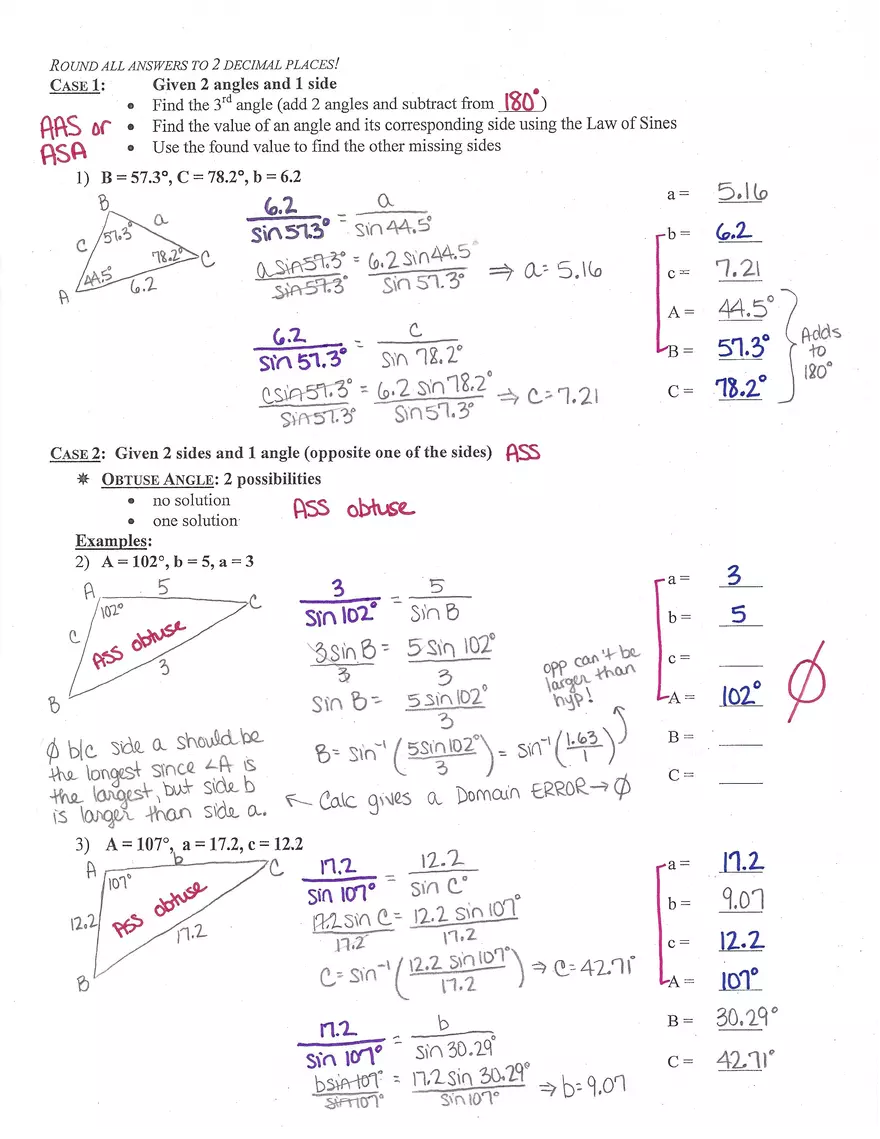 ROUND ALL ANSWERS TO 2 DECIMAL PLACES!
CASE 1: Given 2 angles and 1 side
• Find the 3rd angle (add 2 angles and subtract from 180°)
AAS or • Find the value of an angle and its corresponding side using the Law of Sines
ASA • Use the found value to find the other missing sides
1) B = 57.3°, C = 78.2°, b = 6.2
B
a
57.3°
C
78.2°
C
44.5°
A
6.2
6.2 / sin 57.3° = a / sin 44.5°
a sin 57.3° / sin 57.3° = 6.2 sin 44.5° / sin 57.3° ⇒ a = 5.16
6.2 / sin 57.3° = c / sin 78.2°
c sin 57.3° / sin 57.3° = 6.2 sin 78.2° / sin 57.3° ⇒ c = 7.21
a = 5.16
b = 6.2
c = 7.21
A = 44.5°
B = 57.3°
C = 78.2°
Adds
to
180°
CASE 2: Given 2 sides and 1 angle (opposite one of the sides) ASS
✷ OBTUSE ANGLE: 2 possibilities
• no solution
• one solution
ASS obtuse
Examples:
2) A = 102°, b = 5, a = 3
A
5
C
102°
C
ASS obtuse
3
B
3 / sin 102° = 5 / sin B
3 sin B / 3 = 5 sin 102° / 3
sin B = 5 sin 102° / 3
B = sin⁻¹ (5 sin 102° / 3) = sin⁻¹ (1.63 / 1)
opp can't be
larger than
hyp!
← Calc gives a Domain ERROR → ∅
∅ b/c side a should be
the longest since ∠A is
the largest, but side b
is larger than side a.
a = 3
b = 5
c =
A = 102°
B =
C =
∅
3) A = 107°, a = 17.2, c = 12.2
A
b
C
107°
12.2
ASS obtuse
17.2
B
17.2 / sin 107° = 12.2 / sin C°
17.2 sin C / 17.2 = 12.2 sin 107° / 17.2
C = sin⁻¹ (12.2 sin 107° / 17.2) ⇒ C = 42.71°
17.2 / sin 107° = b / sin 30.29°
b sin 107° / sin 107° = 17.2 sin 30.29° / sin 107° ⇒ b = 9.07
a = 17.2
b = 9.07
c = 12.2
A = 107°
B = 30.29°
C = 42.71°